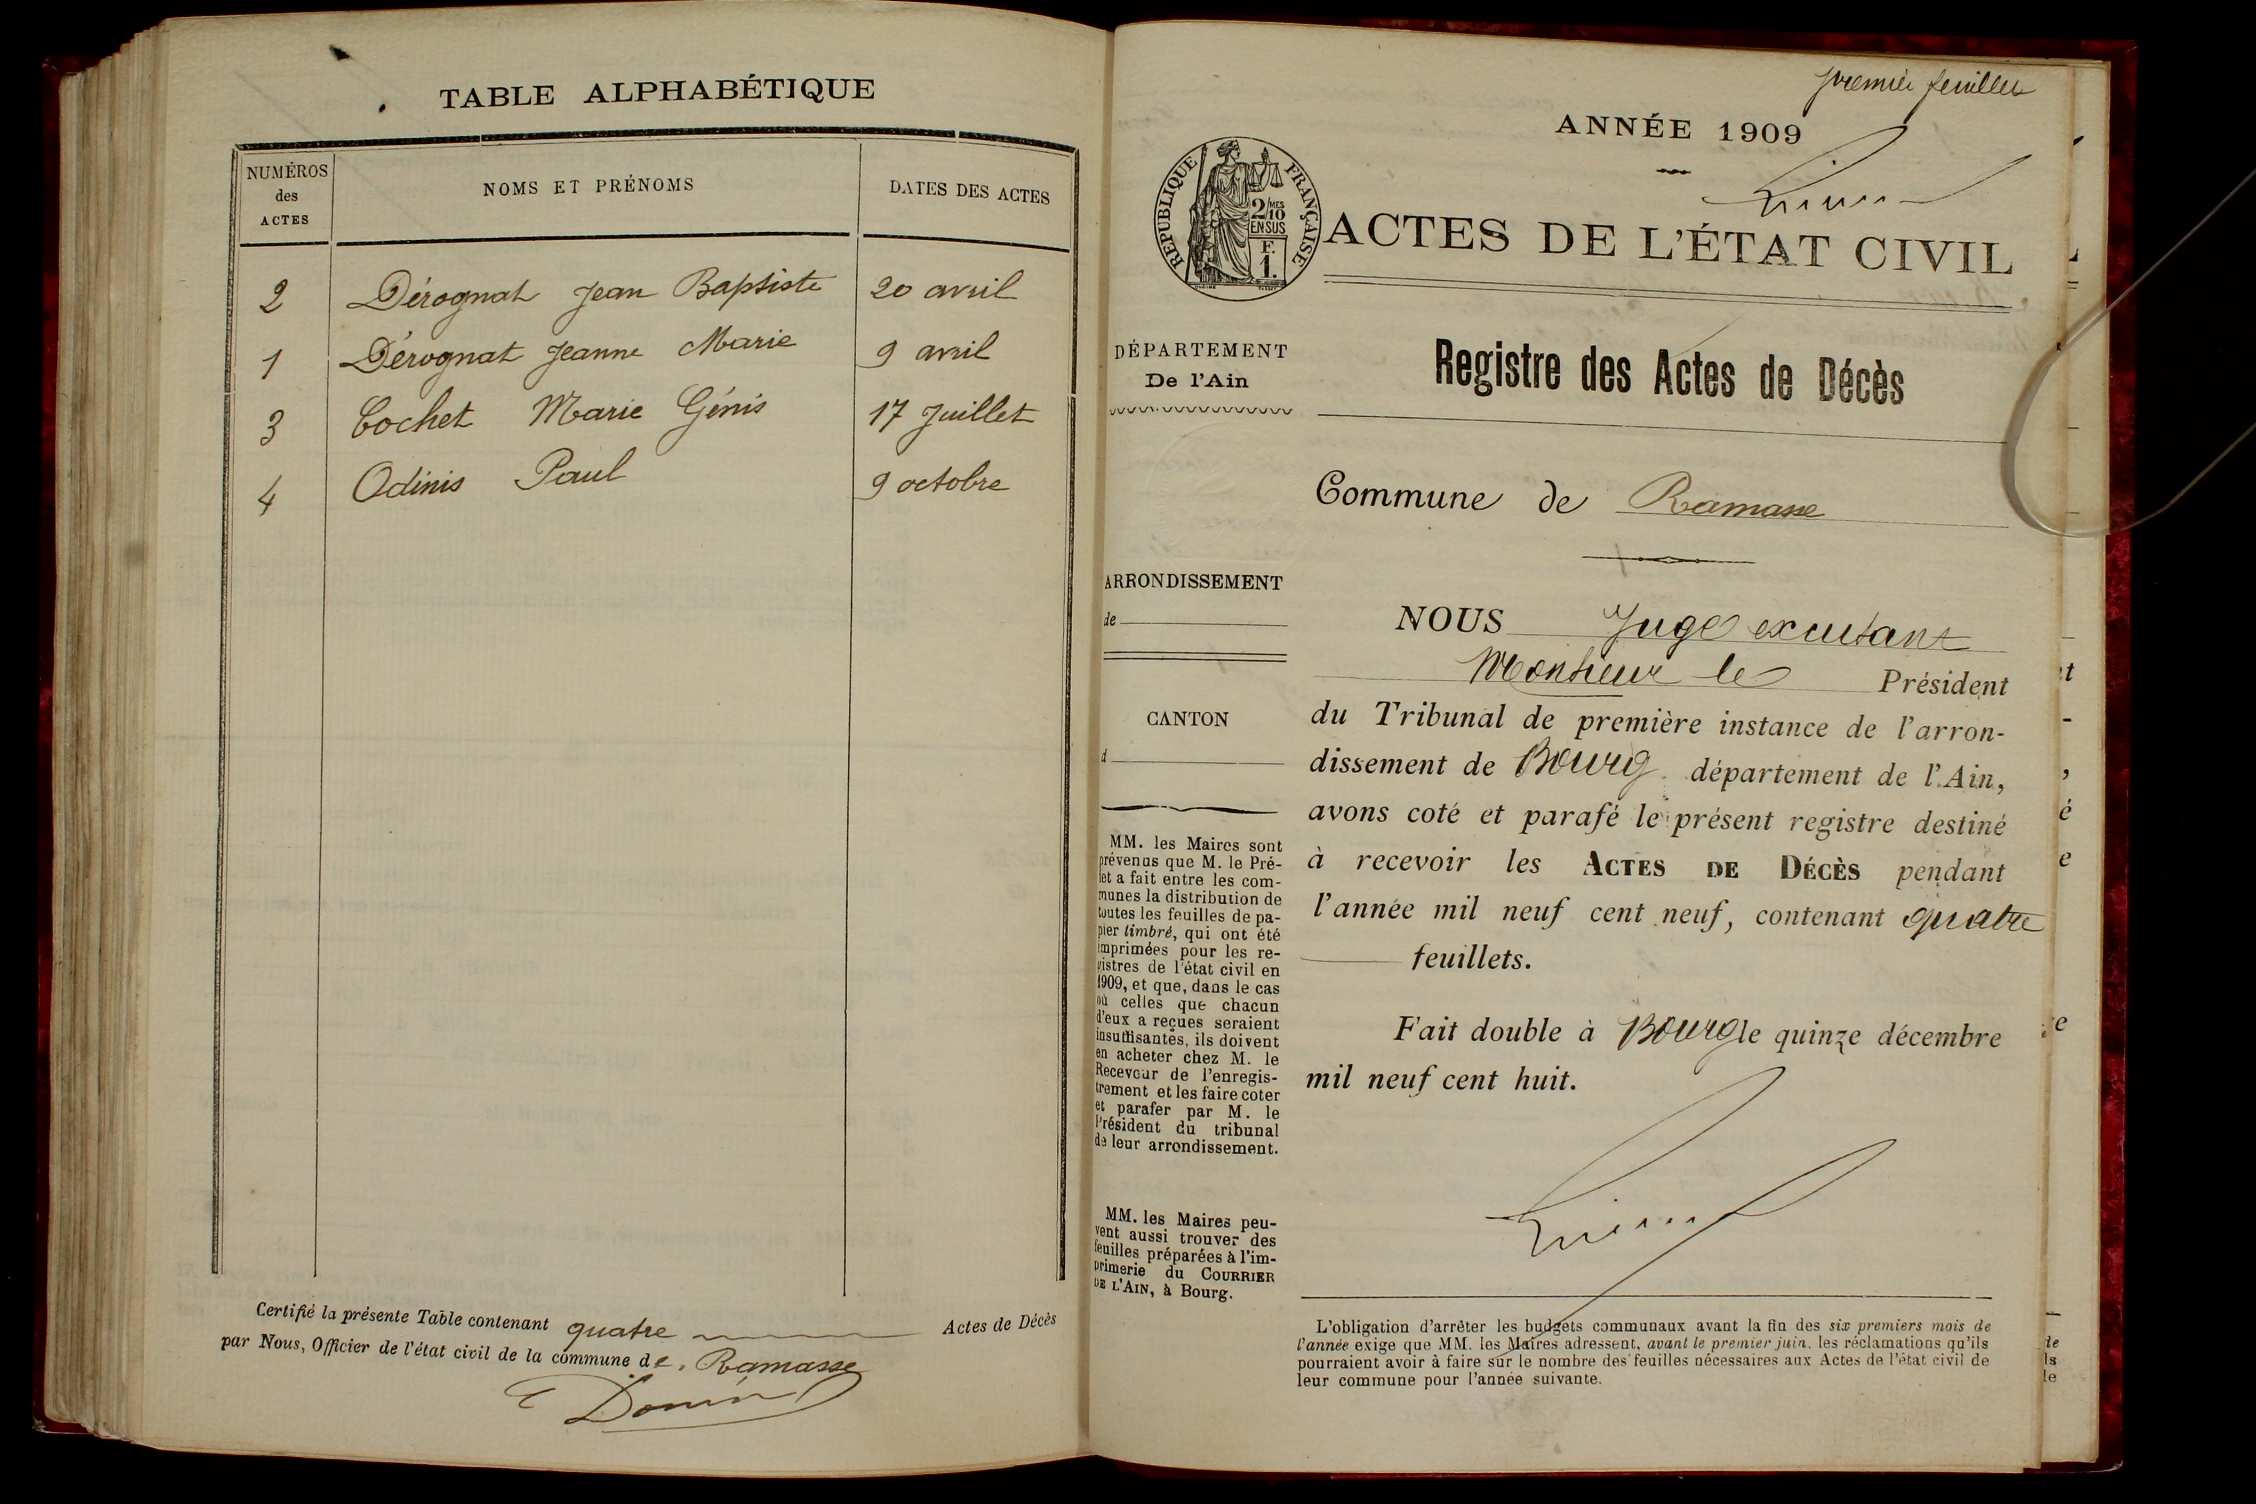 TABLE ALPHABÉTIQUE
NUMÉROS
des
ACTES
NOMS ET PRÉNOMS
DATES DES ACTES
2 Dérognat Jean Baptiste 20 avril
1 Dérognat Jeanne Marie 9 avril
3 Cochet Marie Génis 17 Juillet
4 Odinis Paul 9 octobre
Certifié la présente Table contenant quatre Actes de Décès
par Nous, Officier de l'état civil de la commune de Ramasse
premier feuillet
ANNÉE 1909
RÉPUBLIQUE FRANÇAISE
2/10 MES
EN SUS
F.
1.
ACTES DE L'ÉTAT CIVIL
DÉPARTEMENT
De l'Ain
Registre des Actes de Décès
Commune de Ramasse
ARRONDISSEMENT
de
CANTON
d
MM. les Maires sont
prévenus que M. le Pré-
fet a fait entre les com-
munes la distribution de
toutes les feuilles de pa-
pier timbré, qui ont été
imprimées pour les re-
gistres de l'état civil en
1909, et que, dans le cas
où celles que chacun
d'eux a reçues seraient
insuffisantes, ils doivent
en acheter chez M. le
Receveur de l'enregis-
trement et les faire coter
et parafer par M. le
Président du tribunal
de leur arrondissement.
MM. les Maires peu-
vent aussi trouver des
feuilles préparées à l'im-
primerie du COURRIER
DE L'AIN, à Bourg.
NOUS Juge excutant
Monsieur le Président
du Tribunal de première instance de l'arron-
dissement de Bourg département de l'Ain,
avons coté et parafé le présent registre destiné
à recevoir les ACTES DE DÉCÈS pendant
l'année mil neuf cent neuf, contenant quatre
feuillets.
Fait double à Bourg le quinze décembre
mil neuf cent huit.
L'obligation d'arrêter les budgets communaux avant la fin des six premiers mois de
l'année exige que MM. les Maires adressent, avant le premier juin, les réclamations qu'ils
pourraient avoir à faire sur le nombre des feuilles nécessaires aux Actes de l'état civil de
leur commune pour l'année suivante.